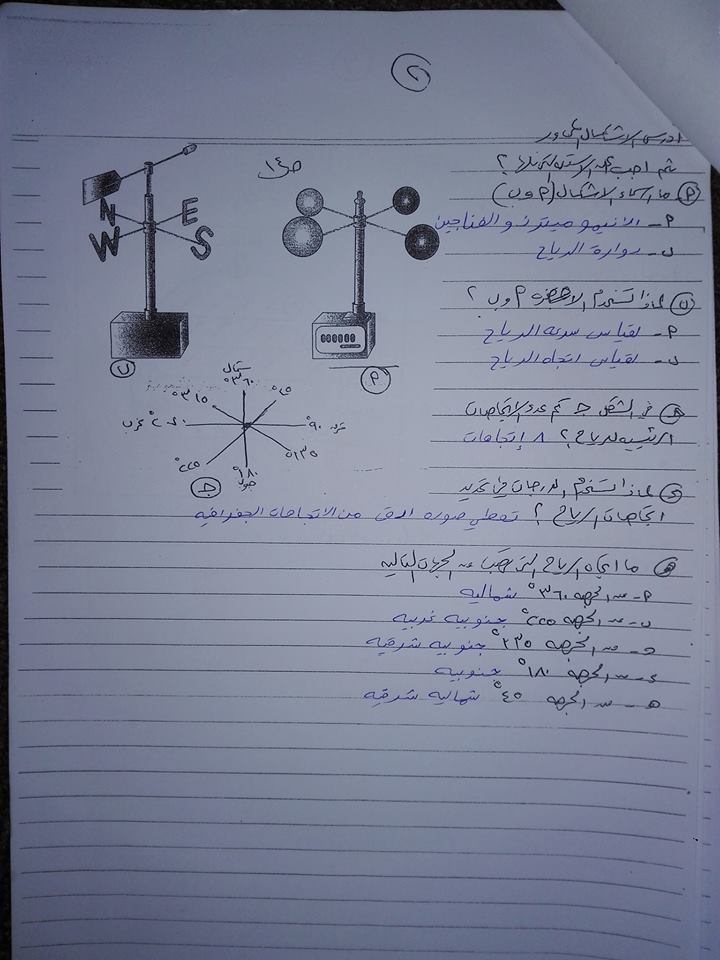 ٢
ادرس الاشكال
ثم اجب عن الاسئلة التي تليها ؟
ص ١٤
أ ما اسماء الاشكال (أ و ب)
أ - الأنيموميتر ذو الفناجين
ب - دوارة الرياح
ب لماذا تستخدم الأجهزة أ و ب ؟
أ - لقياس سرعه الرياح
ب - لقياس اتجاه الرياح
N E
W S
ب
أ
شمال
°٣٦٠
°٤٥
°٣١٥
شرق °٩٠
°٢٧٠ غرب
°١٣٥
°٢٢٥
°١٨٠
جنوب
ج
ج في الشكل ج كم عدد الاتجاهات
الرئيسيه للرياح ؟ ٨ إتجاهات
د لماذا تستخدم الدرجات في تحديد
اتجاهات الرياح ؟ تعطي صوره ادق من الاتجاهات الجغرافيه
هـ ما اتجاه الرياح التي تهب من الجهات التاليه
أ - من الجهه °٣٦٠ شماليه
ب - من الجهه °٢٢٥ جنوبيه غربيه
ج - من الجهه °١٣٥ جنوبيه شرقيه
د - من الجهه °١٨٠ جنوبيه
هـ - من الجهه °٤٥ شماليه شرقيه